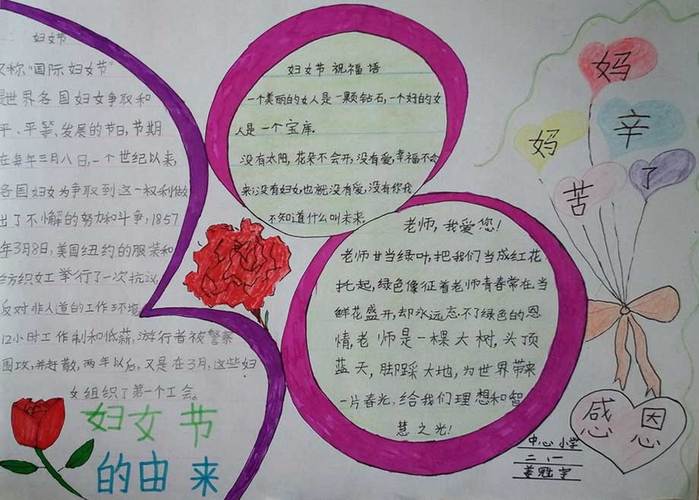 妇女节
又称"国际妇女节"
是世界各国妇女争取和
平、平等、发展的节日,节期
在每年三月八日,一个世纪以来,
各国妇女为争取到这一权利做
出了不懈的努力和斗争,1857
年3月8号,美国纽约的服装和
纺织女工举行了一次抗议,
反对非人道的工作环境,
12小时工作制和低薪,游行者被警察
围攻,并赶散,两年以后,又是在3月,这些妇
女组织了第一个工会。
妇女节
的由来
妇女节祝福语
一个美丽的女人是一颗钻石,一个好的女
人是一个宝库。
没有太阳,花朵不会开,没有爱,幸福不会
来;没有妇女,也就没有爱,没有你我
不知道什么叫未来。
老师,我爱您!
老师甘当绿叶,把我们当成红花
托起,绿色像征着老师青春常在,当
鲜花盛开,却永远忘不了绿色的恩
情,老师是一棵大树,头顶
蓝天,脚踩大地,为世界带来
一片春光,给我们理想和智
慧之光!
妈
妈
辛
苦
了
感恩
中心小学
二、一